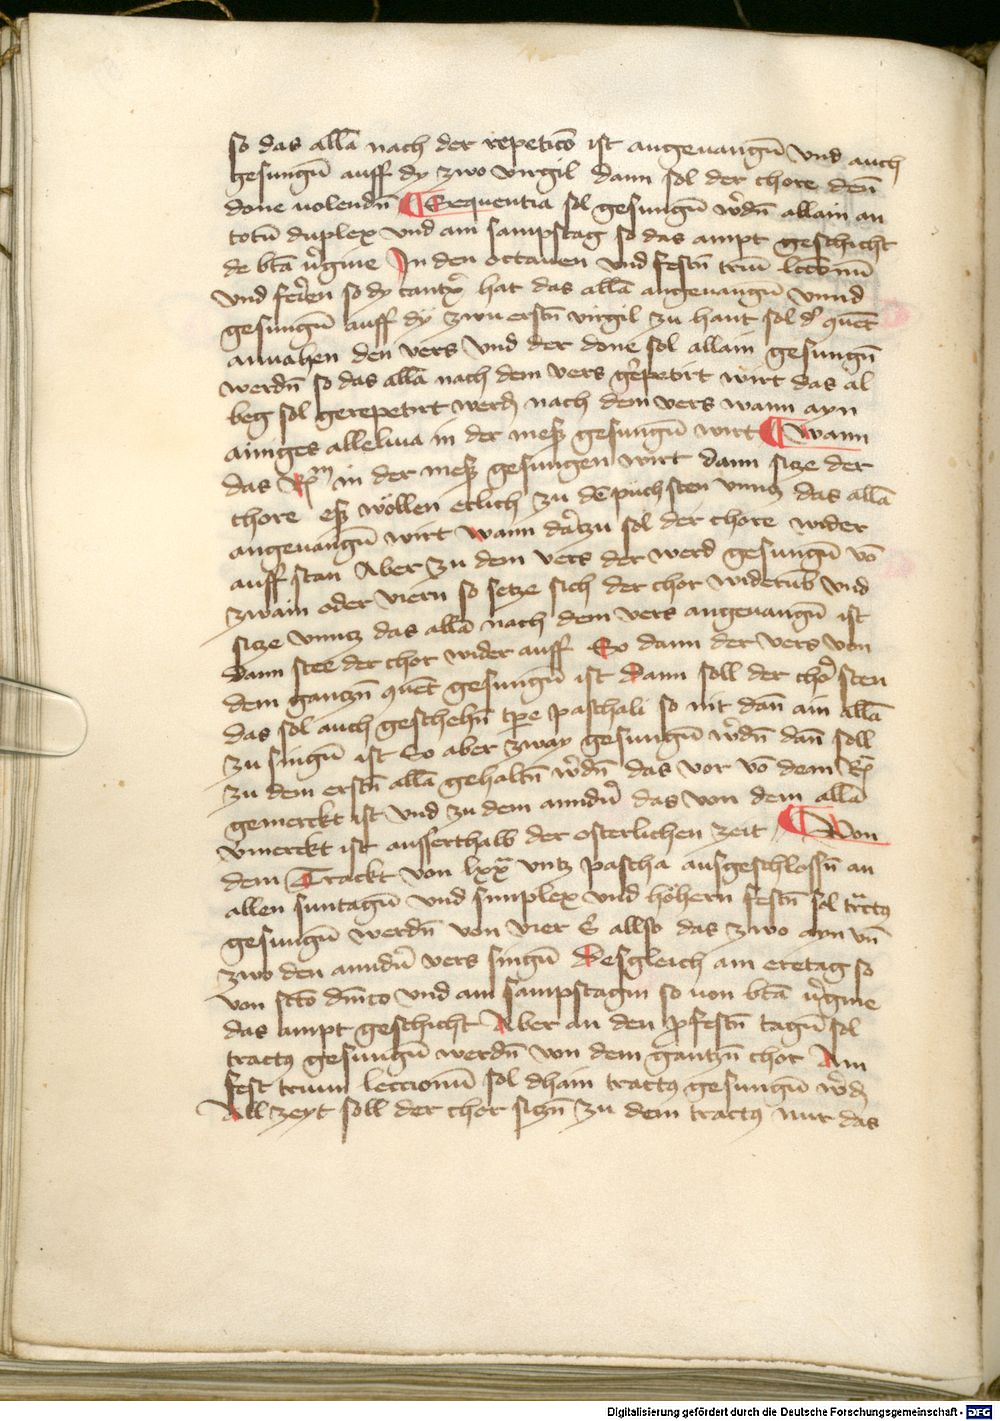 so das allā nach der repeticō ist angeuangū vnd auch
gesungū auff dy zwo virgil dann sol der chore denn̄
done uolendn̄ ¶ Sequentia sol gesungū w̓dn̄ allain an
totū duplex vnd am sampstag so das ampt geschicht
de btā v̓gine In den octauen vnd festn̄ triū lcc̄onū
vnd feꝛ̓en so dy cantꝛ̓ hat das allā angeuangū vnnd
gesungū auff dÿ zwu erstn̄ virgil zu hant sol d̓ 9uēt
anuahen den vers vnd der done sol allain gesungn̄
werdn̄ so das allā nach dem vers g̓repetirt wirt das al
beg sol gerepetirt werdn̄ nach dem vers wann ayn
ainiges alleluia in der mesß gesungū wirt ¶ Wann
das R̄m in der mesß gesungen wirt dann size der
chore esß wöllen etlich zu dē puchsten vnntz das allā
angeuangū wirt wann dar̓tzu sol der chore wider
auff stan Aber zu dem vers der werd gesungū vō
zwain oder viern so setze sich der chor widerūb vnd
sitze vnntz das allā nach dem vers angeuangū ist
Dann stee der chor wider auff So dann der vers von
dem gantzn̄ 9uēt gesungū ist Dann soll der chor̓ sten
das sol auch geschehn̄ tp̄e paschali so nit dan̄ ain allā
zu singū ist So aber zway gesungū w̓dn̄ dan̄ soll
zu dem erstn̄ allā gehaltn̄ w̓dn̄ das vor vō dem R̄
gemerckt ist vnd zu dem anndn̓ das von dem allā
v̓merckt ist ausserthalb der osterlichen zeit ¶ Von
dem Trackt von lxxᵃ vntz pascha ausgeschlossn̄ an
allen suntagū vnd simplex vnd höhern festn̄ sol trᵃct9
gesungū werdn̄ von vier also das zwo ayn vn̄
zwo den anndn̓ vers singū Desgleich am eretag so
von sctō dn̄ico vnd am sampstagin so uon btā v̓gine
das ampt geschicht Aber an den p̄festn̄ tagū sol
tract9 gesungū werdn̄ von dem gantzn̄ chor Am
fest trium leccionū sol dhain tract9 gesungū w̓dn̄
All zeyt soll der chor sitzn̄ zu dem tract9 nur das
Digitalisierung gefördert durch die Deutsche Forschungsgemeinschaft - DFG